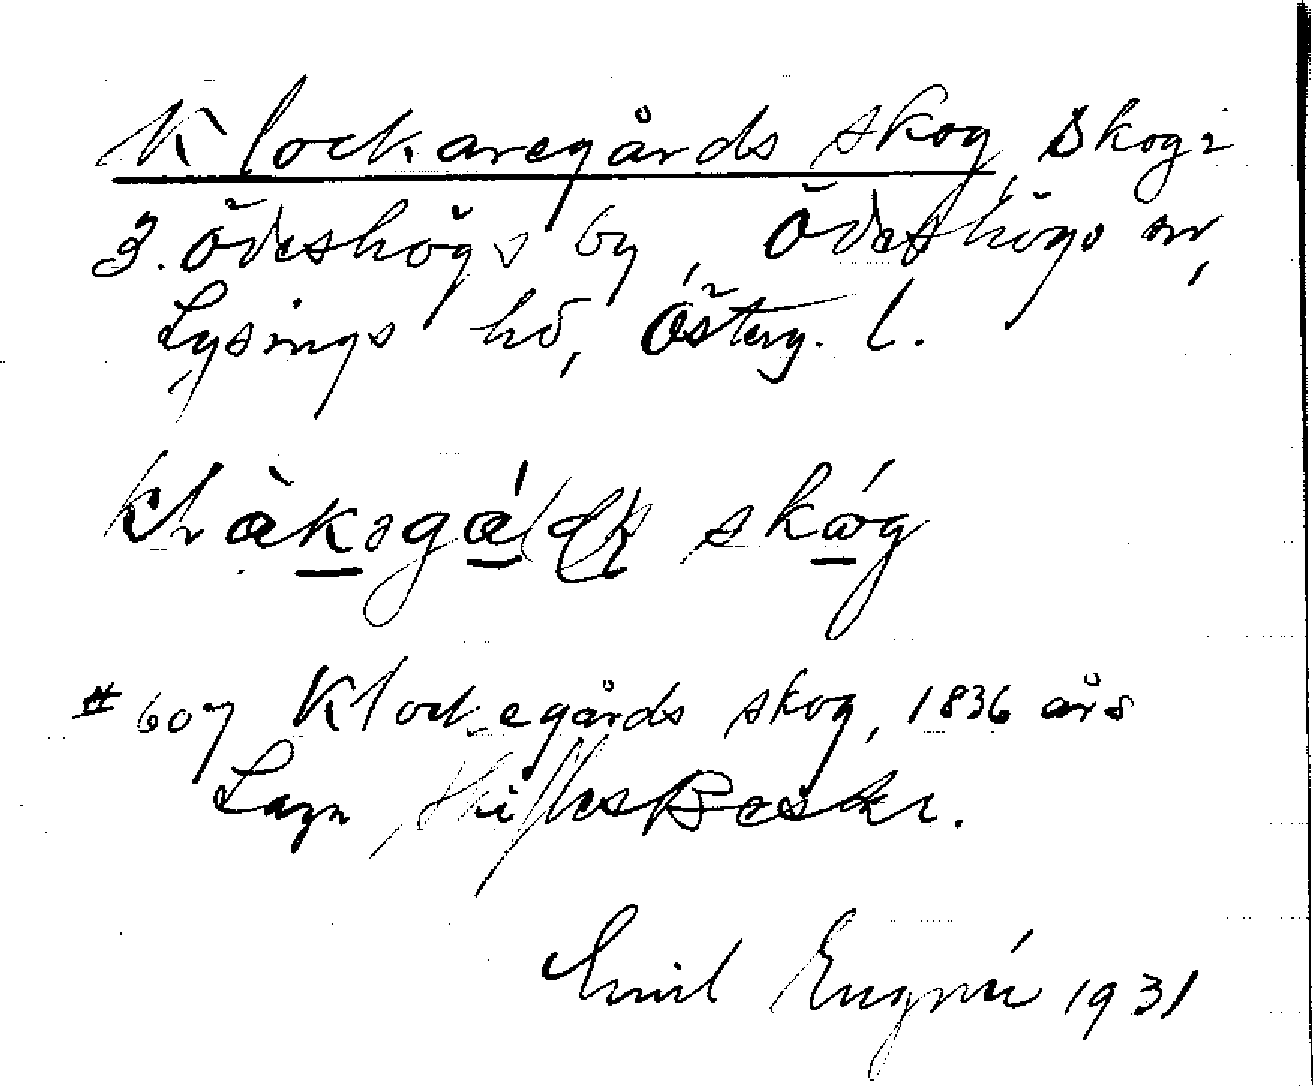 Klockaregårds skog, Skog i
3. Ödeshögs by, Ödeshögs sn,
Lysings hd, Österg. l.
skóg
# 607 Klockegårds skog, 1836 års
Laga SkiftesBeskr.
Emil Engné 1931